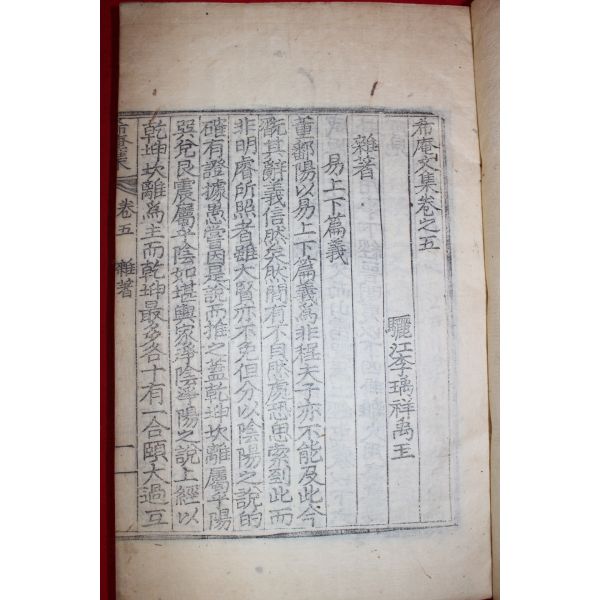 希庵文集卷之五
驪江李瑀祥禹玉
雜著
易上下篇義
董鄱陽以易上下篇義爲非程夫子亦不能及此今
翫其辭義信然矣然間有不自然處恐思索到此而
非明睿所照者雖大賢亦不免但分以陰陽之說的
確有證據爲嘗因是說而推之蓋乾坤坎離屬乎陽
巽兌艮震屬乎陰如堪輿家淨陰淨陽之說上經以
乾坤坎離爲主而乾坤最多各十有一合頤大過互
希庵集 卷五 雜著 一